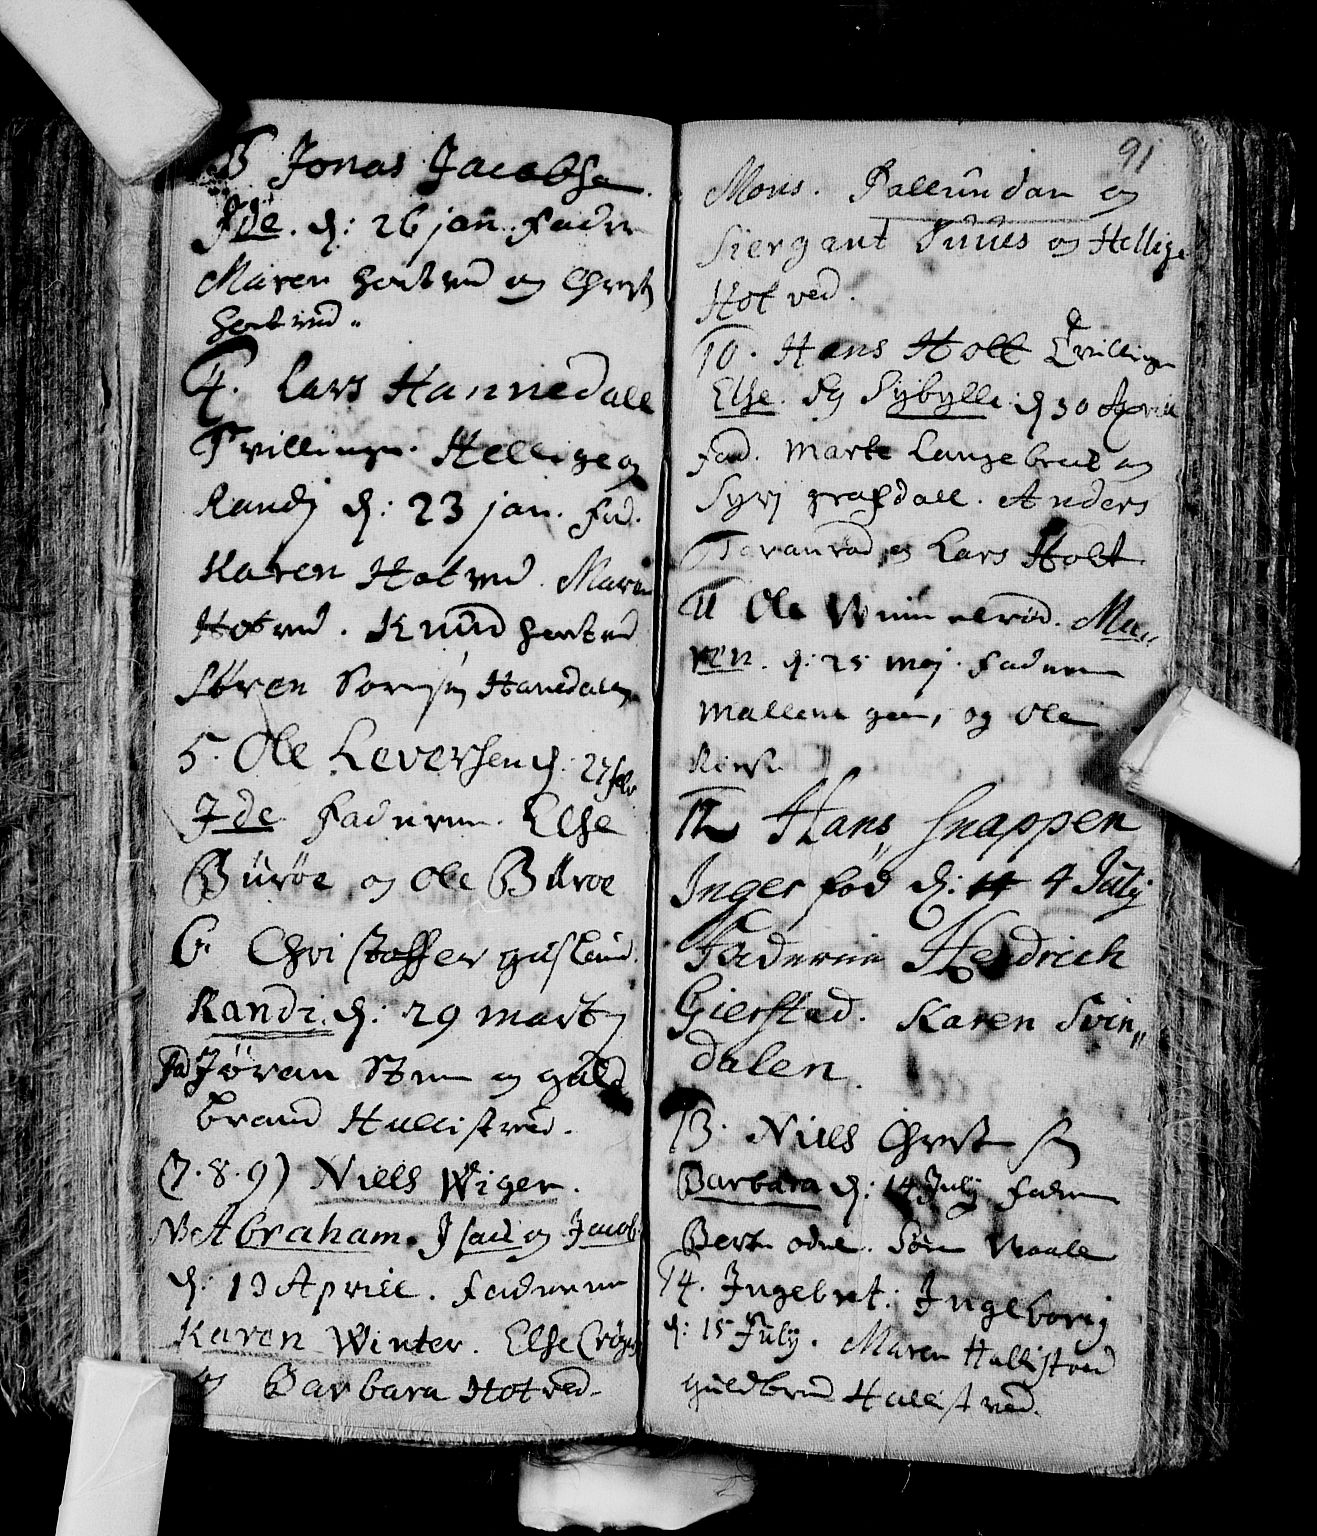 3 Jonas Jacobsen
Ide. d: 26 jan. Faderne
Maren Hotved og Christ
Hotved.
4. Lars Hannedall
Tvillinger. Hellige og
Randj d: 23 jan. Fad.
Karen Hotved. Maren
Hotved. Knud Hotved
Søren Hanedalen
5. Ole Leversen d: 27 feb
Ide Faderne. Else
Bûrøe og Ole Bûroe
6. Christoffer
Randi. d: 29 marty
Fad Jøran og guld
brand Hullistved.
(7. 8. 9) Niels Wiger.
NB Abraham. Isac og Jacob
d: 13 Aprill. Faderne
Karen Winter. Else
og Barbara Hotved.
91
Mons. Pallûndan og
Siergant Juûls og Hellige
Hotved.
10. Hans Holt Tvillinger
Else. Og Sybylle d 30 Aprill
Fad. Marte Langebrek og
Syrj grafdall. Anders
og Lars Holt
11 Ole Wûmelrød. Ma„
ren. d: 25 Maj. Faderne
og Ole
12 Hans Snappen
Inger fød d: 4 Julij
Faderne Hendrich
Gierstad. Karen Svin„
dalen.
13. Niels Christ
Barbara d: 14 Julij Faderne
Sørn Waale
14. Ingebret. Ingeborg
d: 15 Julij. Maren Hullistved
guldbrand Hullistved.